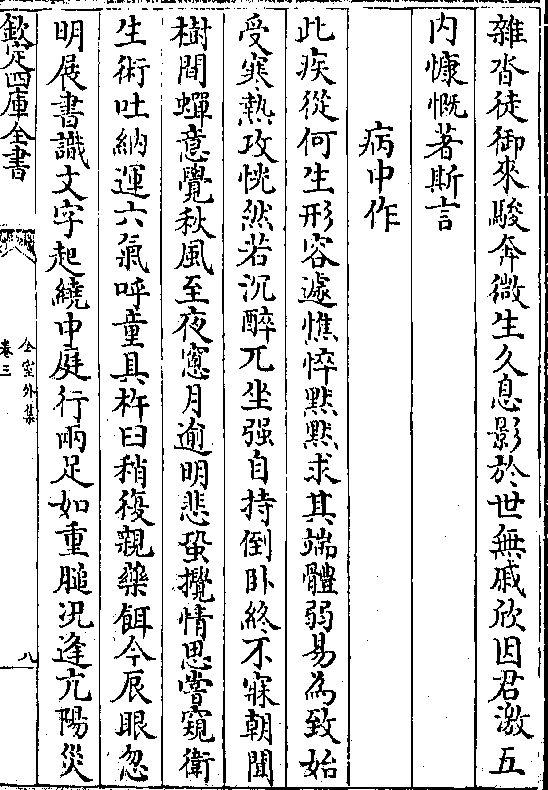 雜沓徒御來駿奔微生久息影於世無戚欣因君激五
内慷慨著斯言
病中作
此疾從何生形容遽憔悴黙黙求其端體弱易為致始
受寒熱攻恍然若沉醉兀坐强自持倒卧終不寐朝聞
樹間蟬意覺秋風至夜窻月逾明悲蛩攪情思嘗窺衛
生術吐納運六氣呼童具杵臼稍復親藥餌今辰眼忽
明展書識文字起繞中庭行兩足如重膇况逢亢陽災
欽定四庫全書
全室外集
卷三
八